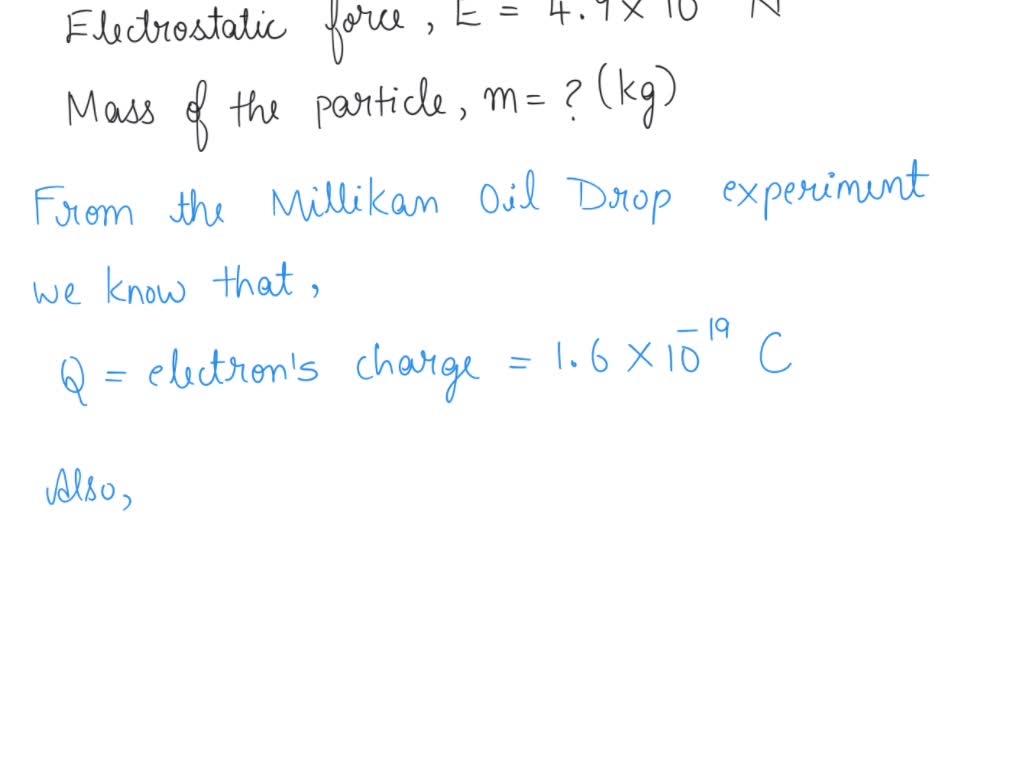 Electrostatic force, E = 4.9 × 10 N
Mass of the particle, m = ? (kg)
From the Millikan Oil Drop experiment
we know that,
Q = electron's charge = 1.6 × 10⁻¹⁹ C
Also,